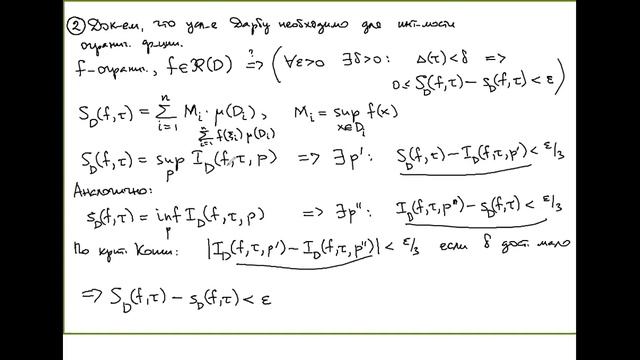 ② Док-ем, что усл-е Дарбу необходимо для инт-мости
огранич. ф-ции.
f-огранич., f∈ℛ(D) ?⇒ (∀ε>0 ∃δ>0: Δ(τ)<δ ⇒ 0≤S_D(f,τ)−s_D(f,τ)<ε)
S_D(f,τ) = ∑_{i=1}^{n} M_i·μ(D_i), M_i = sup_{x∈D_i} f(x)
∑_{i=1}^{n} f(ξ_i) μ(D_i)
S_D(f,τ) = sup_p I_D(f,τ,p) ⇒ ∃p': S_D(f,τ)−I_D(f,τ,p')<ε/3
Аналогично:
s_D(f,τ) = inf_p I_D(f,τ,p) ⇒ ∃p'': I_D(f,τ,p'')−s_D(f,τ)<ε/3
По крит. Коши: |I_D(f,τ,p')−I_D(f,τ,p'')|<ε/3 если δ дост. мало
⇒ S_D(f,τ)−s_D(f,τ)<ε